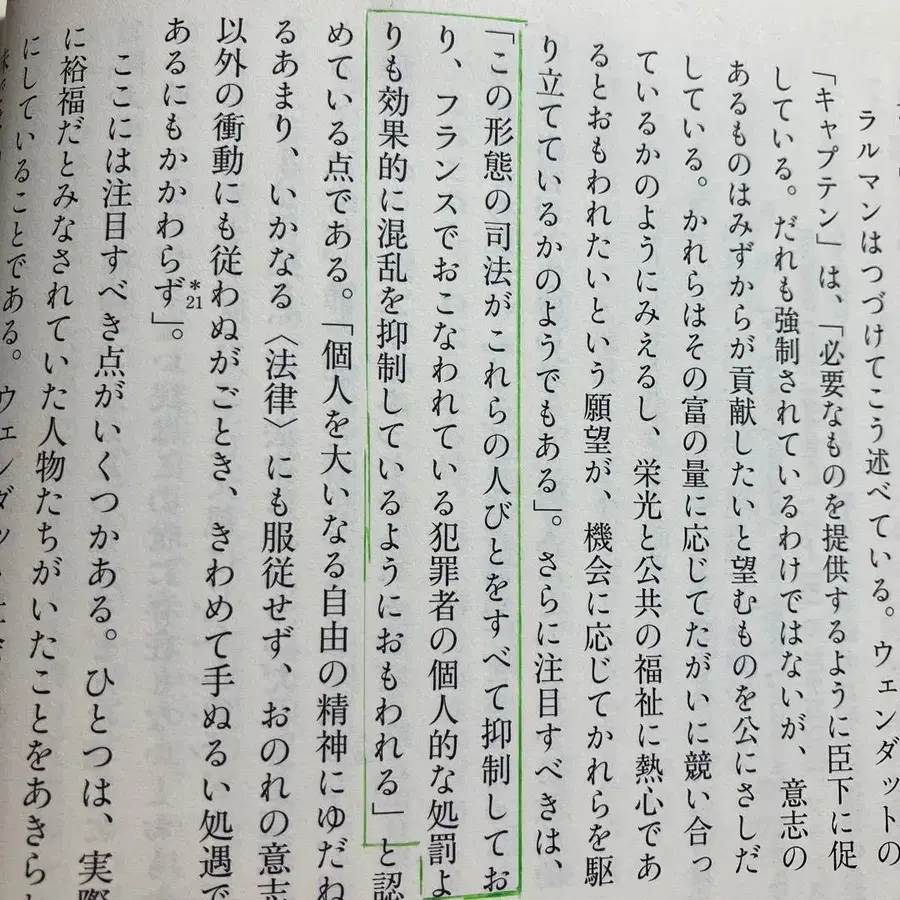 ラルマンはつづけてこう述べている。ウェンダットの
「キャプテン」は、「必要なものを提供するように臣下に促
している。だれも強制されているわけではないが、意志の
あるものはみずからが貢献したいと望むものを公にさしだ
している。かれらはその富の量に応じてたがいに競い合っ
ているかのようにみえるし、栄光と公共の福祉に熱心であ
るとおもわれたいという願望が、機会に応じてかれらを駆
り立てているかのようでもある」。さらに注目すべきは、
「この形態の司法がこれらの人びとをすべて抑制してお
り、フランスでおこなわれている犯罪者の個人的な処罰よ
りも効果的に混乱を抑制しているようにおもわれる」と認
めている点である。「個人を大いなる自由の精神にゆだね
るあまり、いかなる〈法律〉にも服従せず、おのれの意志
以外の衝動にも従わぬがごとき、きわめて手ぬるい処遇で
あるにもかかわらず*21」。
ここには注目すべき点がいくつかある。ひとつは、実際
に裕福だとみなされていた人物たちがいたことをあきらか
にしていることである。ウェンダット